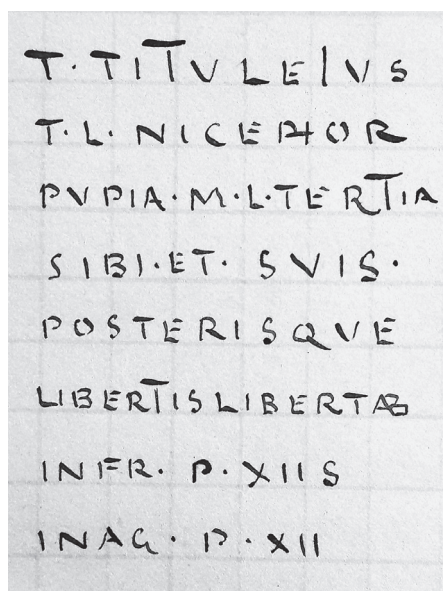 T·TITVLEIVS
T·L·NICEPHOR
PVPIA·M·L·TERTIA
SIBI·ET·SVIS·
POSTERISQVE
LIBERTISLIBERTAB
INFR·P·XIIS
INAG·P·XII